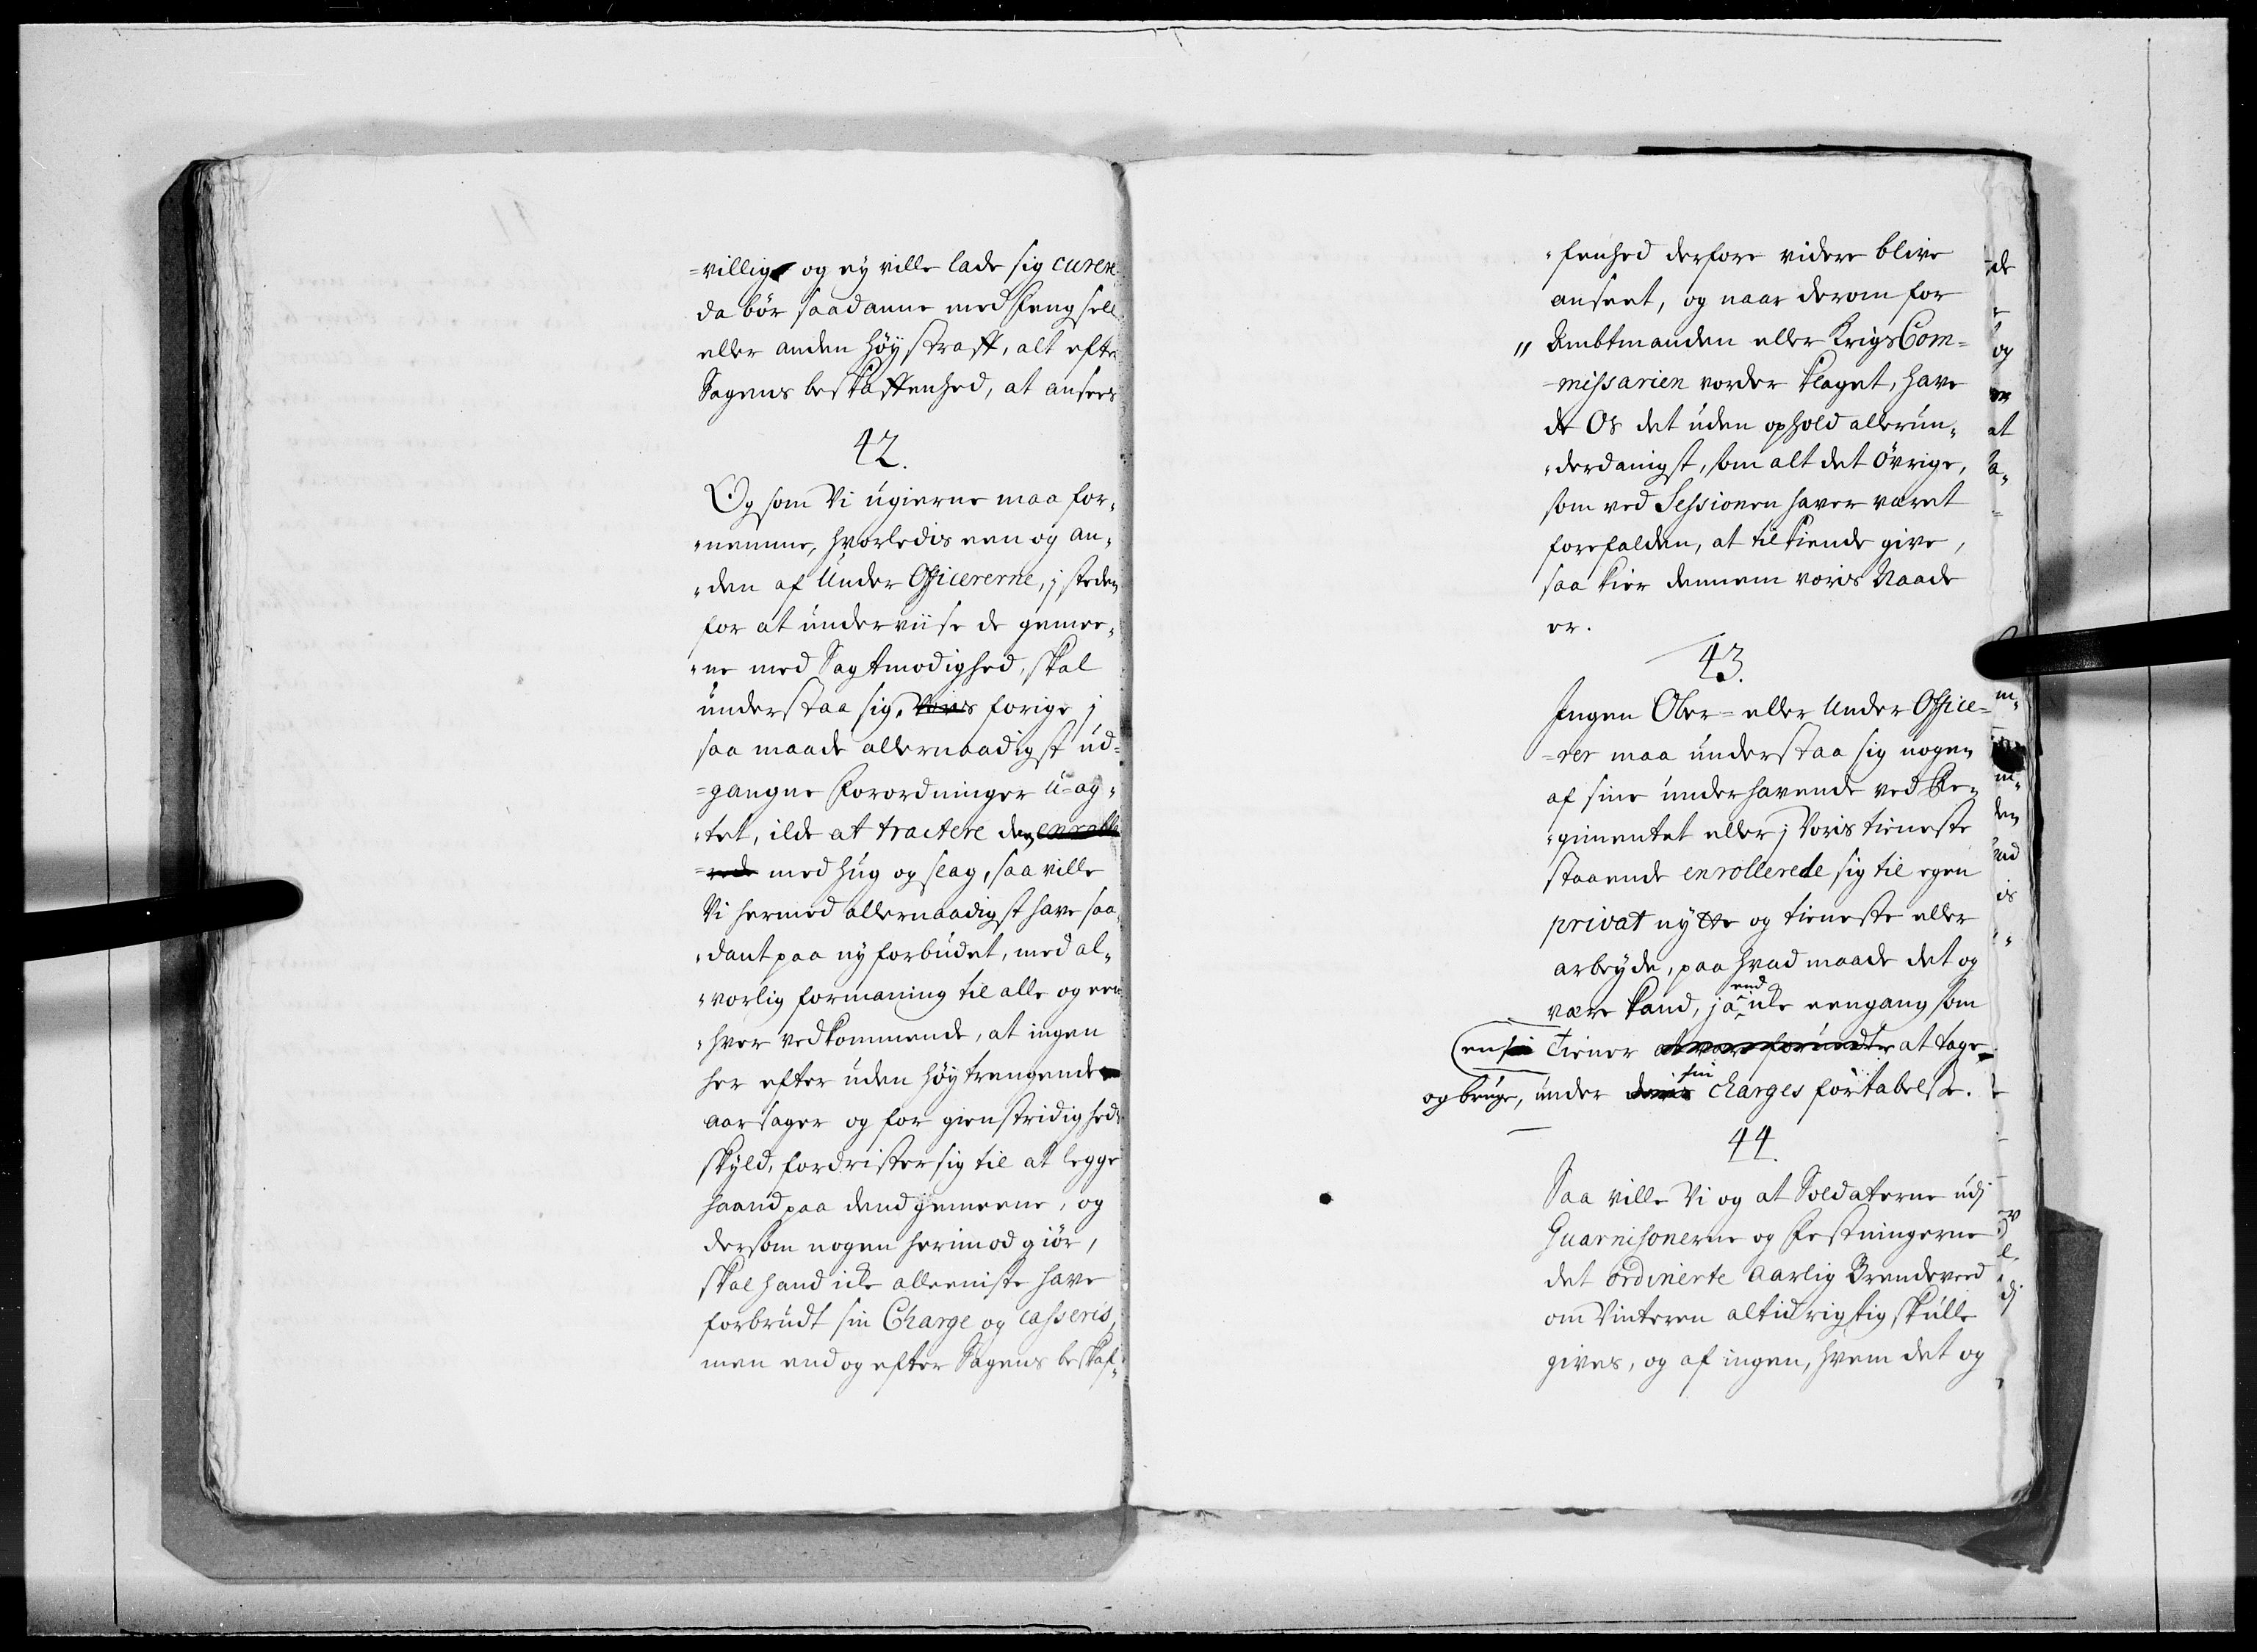 =villige og ey ville lade sig curere
da bör saadanne med Fengsell
eller anden höy straff, alt efter
Sagens beskaffenhed, at ansees
42.
Og som Vi ugierne maa for„
„nemme, hvorledis een og an„
„den af Under Officererne, j steden
for at underviise de gemee„
„ne med Sagtmodighed, skal
understaa sig, Voris forige j
saa maade allernaadigst ud=
=gangne Forordninger u-ag„
„tet, ilde at tractere den enrolle
=rede med hug og slag, saa ville
Vi hermed allernaadigst have saa„
„dant paa ny forbudet, med al„
„vorlig formaning til alle og een
„hver vedkommende, at ingen
her efter uden höy trengende
aarsager og for gienstridigheds
skyld, fordrister sig til at legge
haand paa dend gemeene, og
dersom nogen herimod giör,
skal hand icke alleeniste have
forbrudt sin Charge og casseris,
men end og efter Sagens beskaf„
„fenhed derfore videre blive
anseet, og naar derom for
„ Ambtmanden eller Krigs Com=
=missarien vorder klaget, have
de Os det uden ophold allerun„
„derdanigst, som alt det övrige,
som ved Sessionen haver været
forefalden, at tilkiende give,
saa kier dennem voris Naade
er.
43.
Ingen Ober= eller Under Office=
=rer maa understaa sig nogen
af sine underhavende ved Re„
„gimentet eller j Voris tieneste
staaende enrollerede sig til egen
privat nytte og tieneste eller
arbeyde, paa hvad maade det og
være kand, ja end icke eengang som
en sin Tiener at være forundte at tage
og bruge, under deris sin charges fortabelse.
44.
Saa ville Vi og at Soldaterne udj
Guarnisonerne og Festningerne
det ordinerte aarlig Brendeveed
om Vinteren altid rigtig skulle
gives, og af ingen, hvem det og